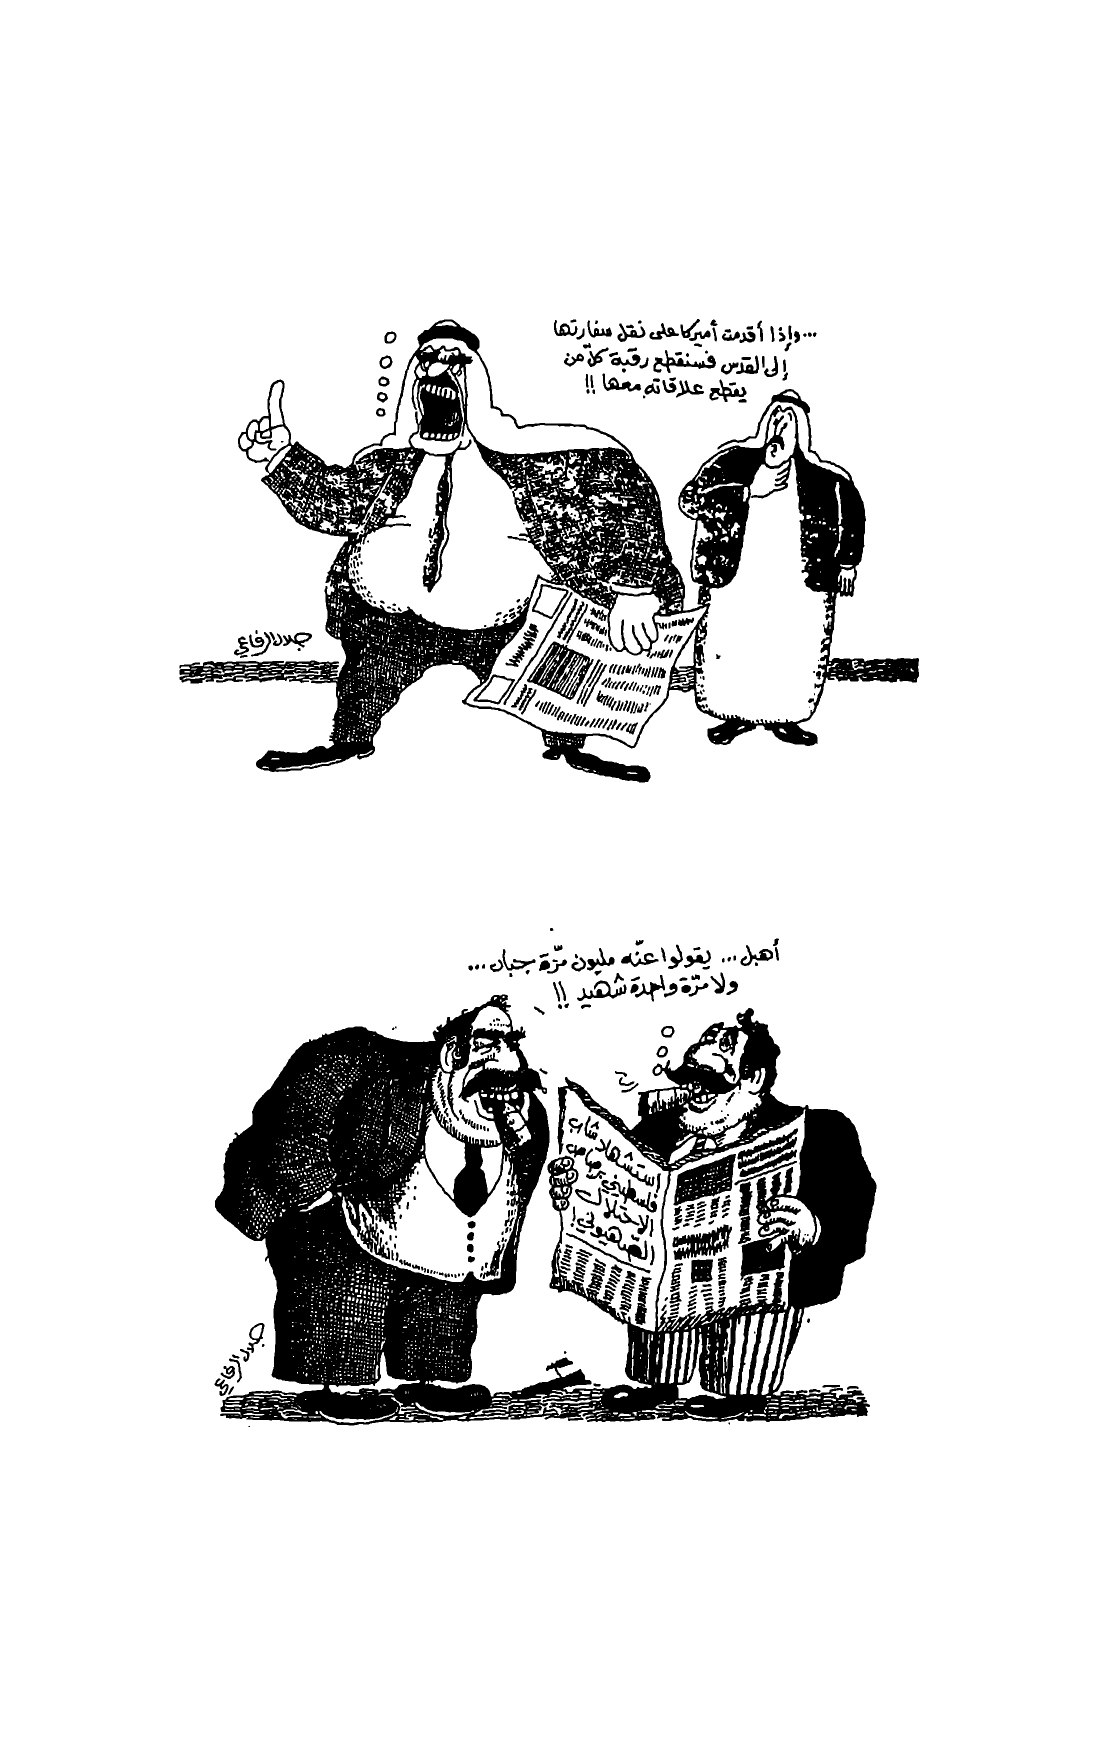 ...وإذا أقدمت أميركا على نقل سفارتها
إلى القدس فسنقطع رقبة كلّ من
يقطع علاقاته معها !!
جلال الرفاعي
أهبل... يقولوا عنّه مليون مرّة جبان...
ولا مرّة واحدة شهيد !!
استشهاد شاب
فلسطيني برصاص
الاحتلال
الصهيوني!
جلال الرفاعي